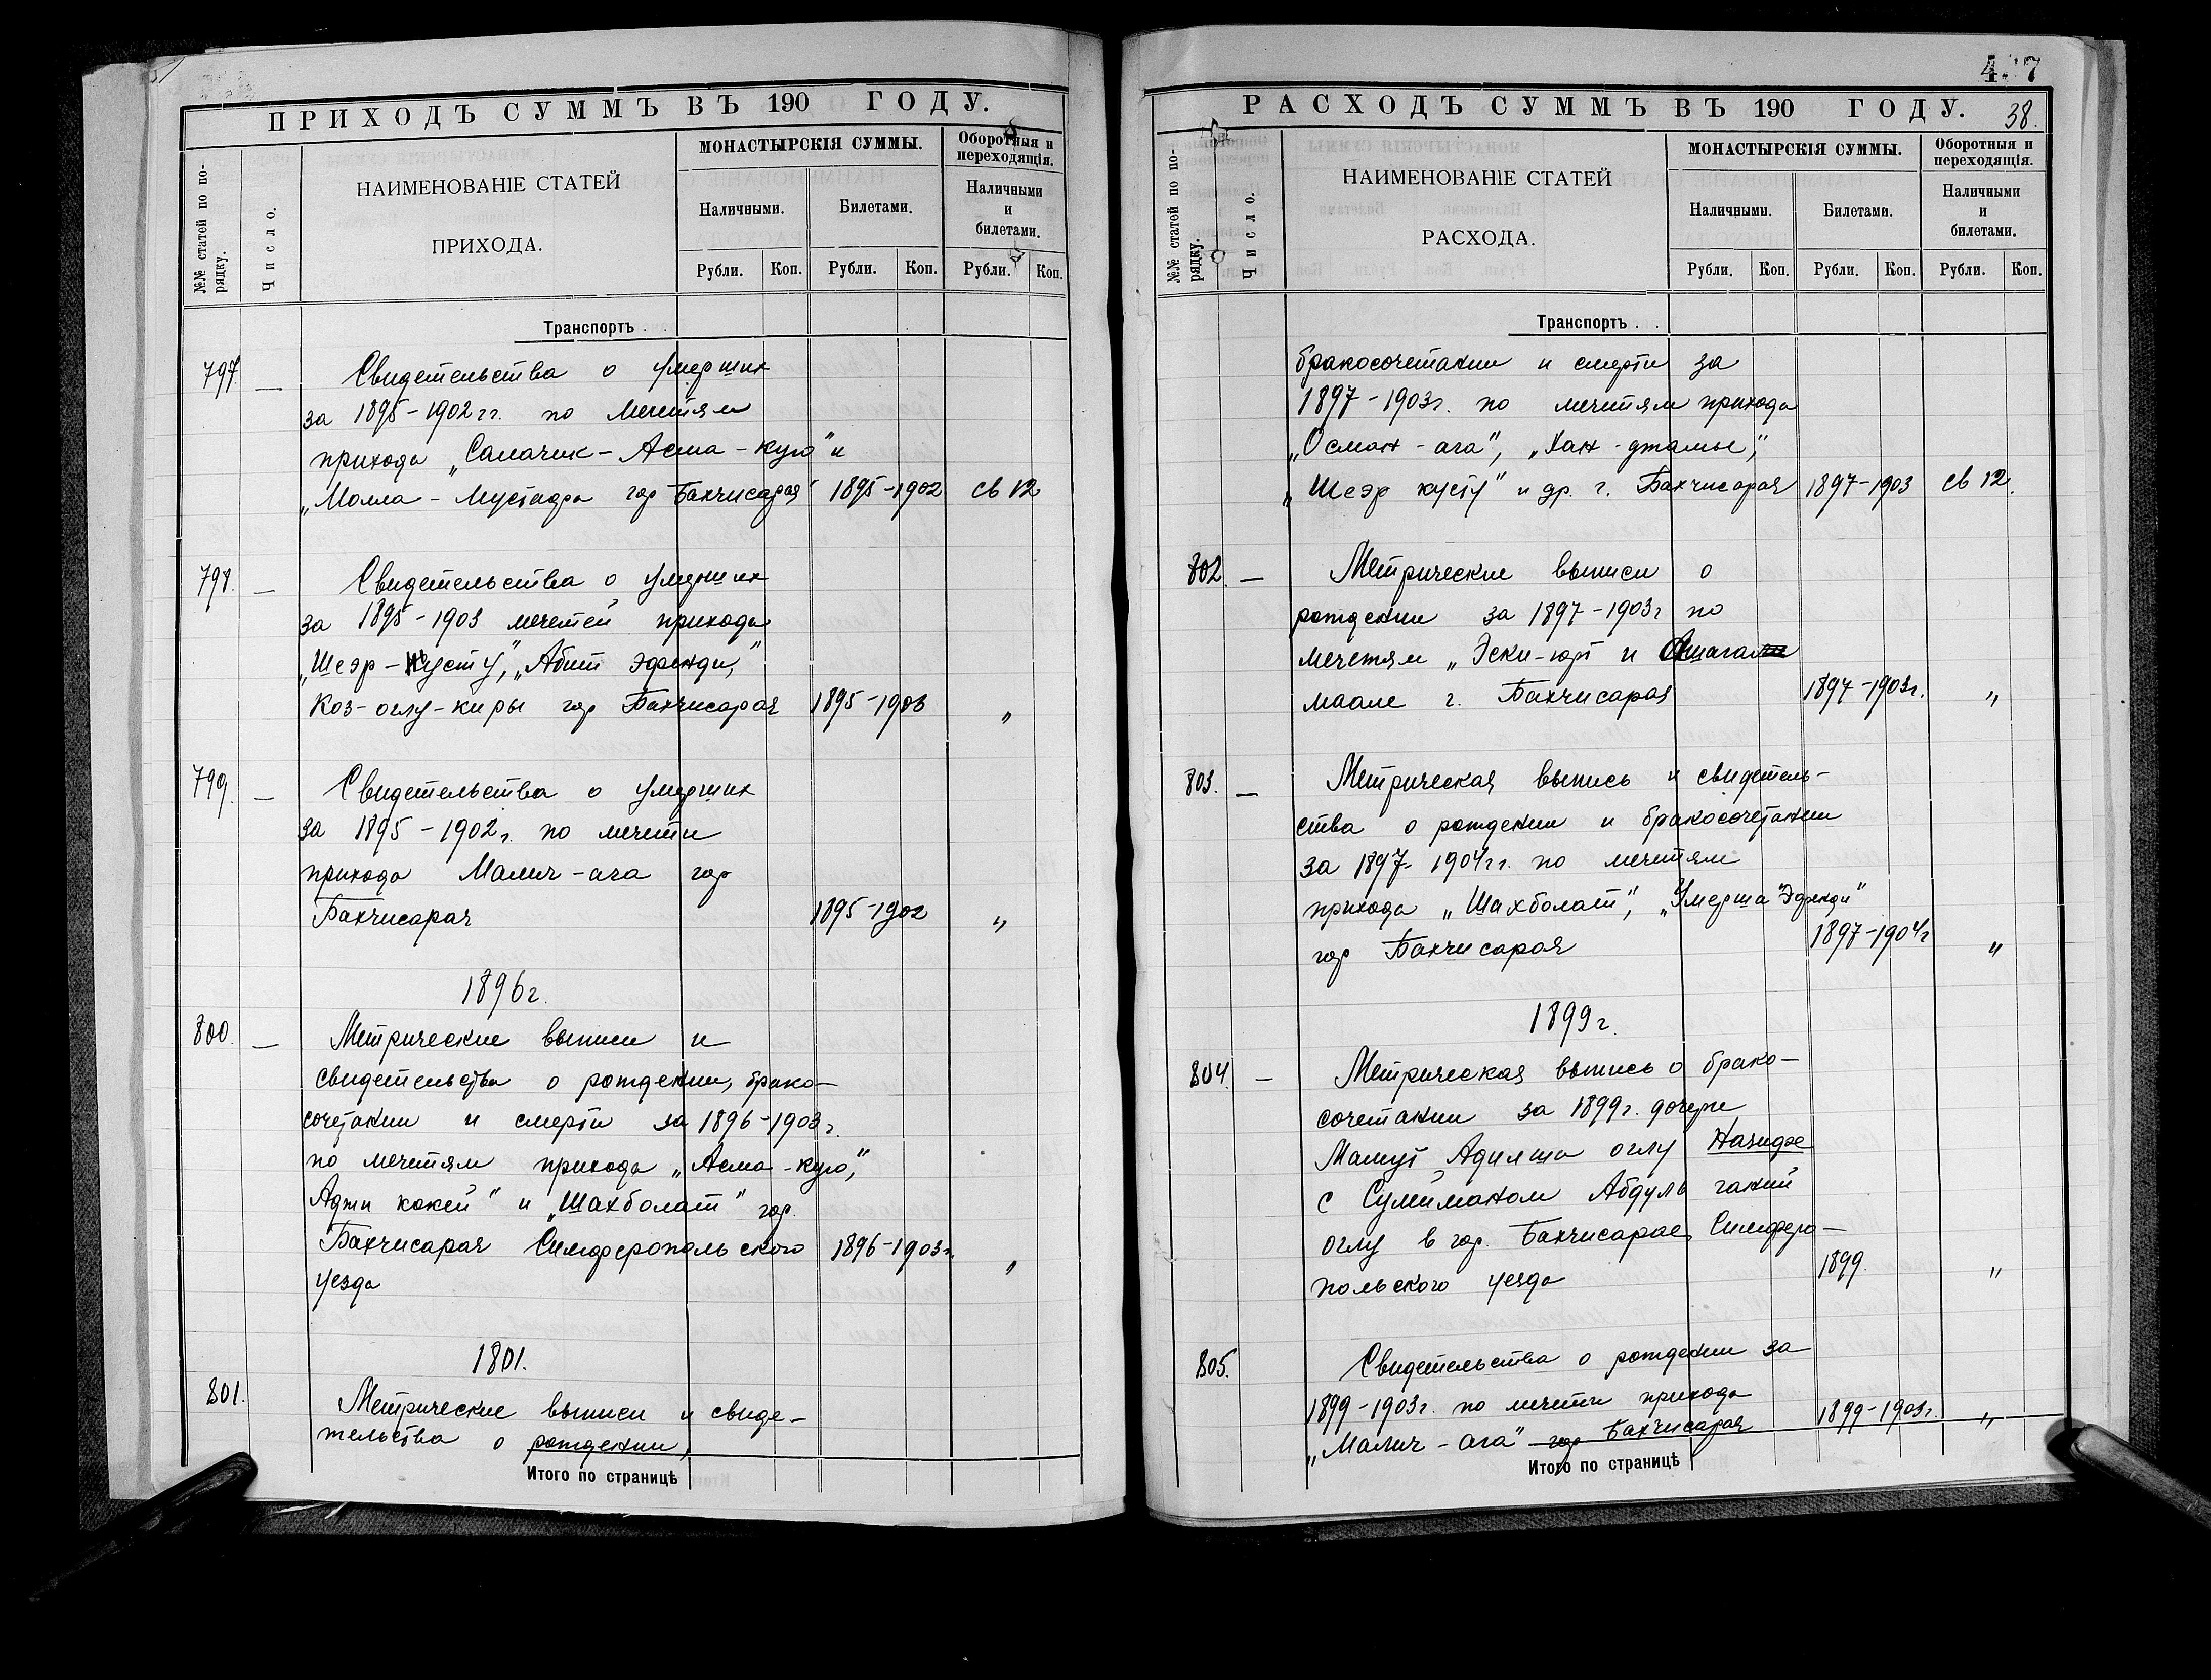 ПРИХОДЪ СУММЪ ВЪ 190 ГОДУ.
№№ статей по порядку.
Число.
НАИМЕНОВАНІЕ СТАТЕЙ
ПРИХОДА.
МОНАСТЫРСКІЯ СУММЫ.
Оборотныя и
переходящія.
Наличными.
Билетами.
Наличными
и
билетами.
Рубли. Коп. Рубли. Коп. Рубли. Коп.
Транспортъ . .
797. — Свидетельства о умерших
за 1895-1902 гг. по мечетям
прихода „Салачик-Асма-кую" и
„Молла-Мустафа гор Бахчисарая 1895-1902 св 12
798. — Свидетельства о умерших
за 1895-1903 мечетей прихода
„Шеэр-Кусту", „Абит эфенди,"
Коз-оглу-киры гор Бахчисарая 1895-1903 "
799. — Свидетельства о умерших
за 1895-1902 г. по мечети
прихода Малич-ага гор
Бахчисарая 1895-1902 "
1896 г.
800. — Метрические выписи и
свидетельства о рождении, брако-
сочетании и смерти за 1896-1903 г.
по мечетям прихода „Асма-кую,"
Аджи кокей" и „Шахболат" гор.
Бахчисарая Симферопольского 1896-1903 г. "
уезда
1801.
801. Метрические выписи и свиде-
тельства о рождении,
Итого по страницѣ
38.
РАСХОДЪ СУММЪ ВЪ 190 ГОДУ.
№№ статей по порядку.
Число.
НАИМЕНОВАНІЕ СТАТЕЙ
РАСХОДА.
МОНАСТЫРСКІЯ СУММЫ.
Оборотныя и
переходящія.
Наличными.
Билетами.
Наличными
и
билетами.
Рубли. Коп. Рубли. Коп. Рубли. Коп.
Транспортъ . .
бракосочетании и смерти за
1897-1903 г. по мечетям прихода
„Осман-ага", „Хан-джамы",
„Шеэр кусту" и др. г. Бахчисарая 1897-1903 св 12.
802. — Метрические выписи о
рождении за 1897-1903 г по
мечетям „Эски-юрт и Ашага
маале г. Бахчисарая 1897-1903 г. "
803. — Метрическая выпись и свидетель-
ства о рождении и бракосочетании
за 1897-1904 гг. по мечетям
прихода „Шахболат", „Умерша Эфенди"
гор Бахчисарая 1897-1904 г "
1899 г.
804. — Метрическая выпись о брако-
сочетании за 1899 г. дочери
Мамут Адильша оглу Назифе
с Сулейманом Абдуль ганий
оглу в гор. Бахчисарае, Симферо-
польского уезда 1899. "
805. Свидетельства о рождении за
1899-1903 г. по мечети прихода
„Малич-ага" гор Бахчисарая 1899-1903 г. "
Итого по страницѣ